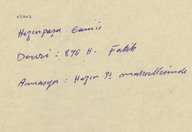 Hızırpaşa Camii
Devri : 876 H. Fatih
Amasya : Hızır Pş mahallesinde